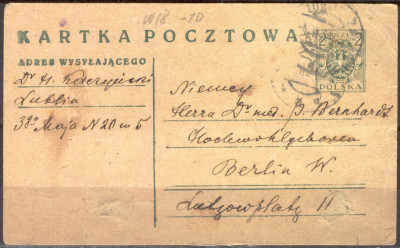 W18 -10
KARTKA POCZTOWA
ADRES WYSYŁAJĄCEGO
Dr H. Kaczyński
Lublin
3go Maja N 20 m 5
POCZTA
2 2
POLSKA
Niemcy
Herrn Dr med. J. Bernhardt
Hochwohlgeboren
Berlin W.
Lutzowplatz 11